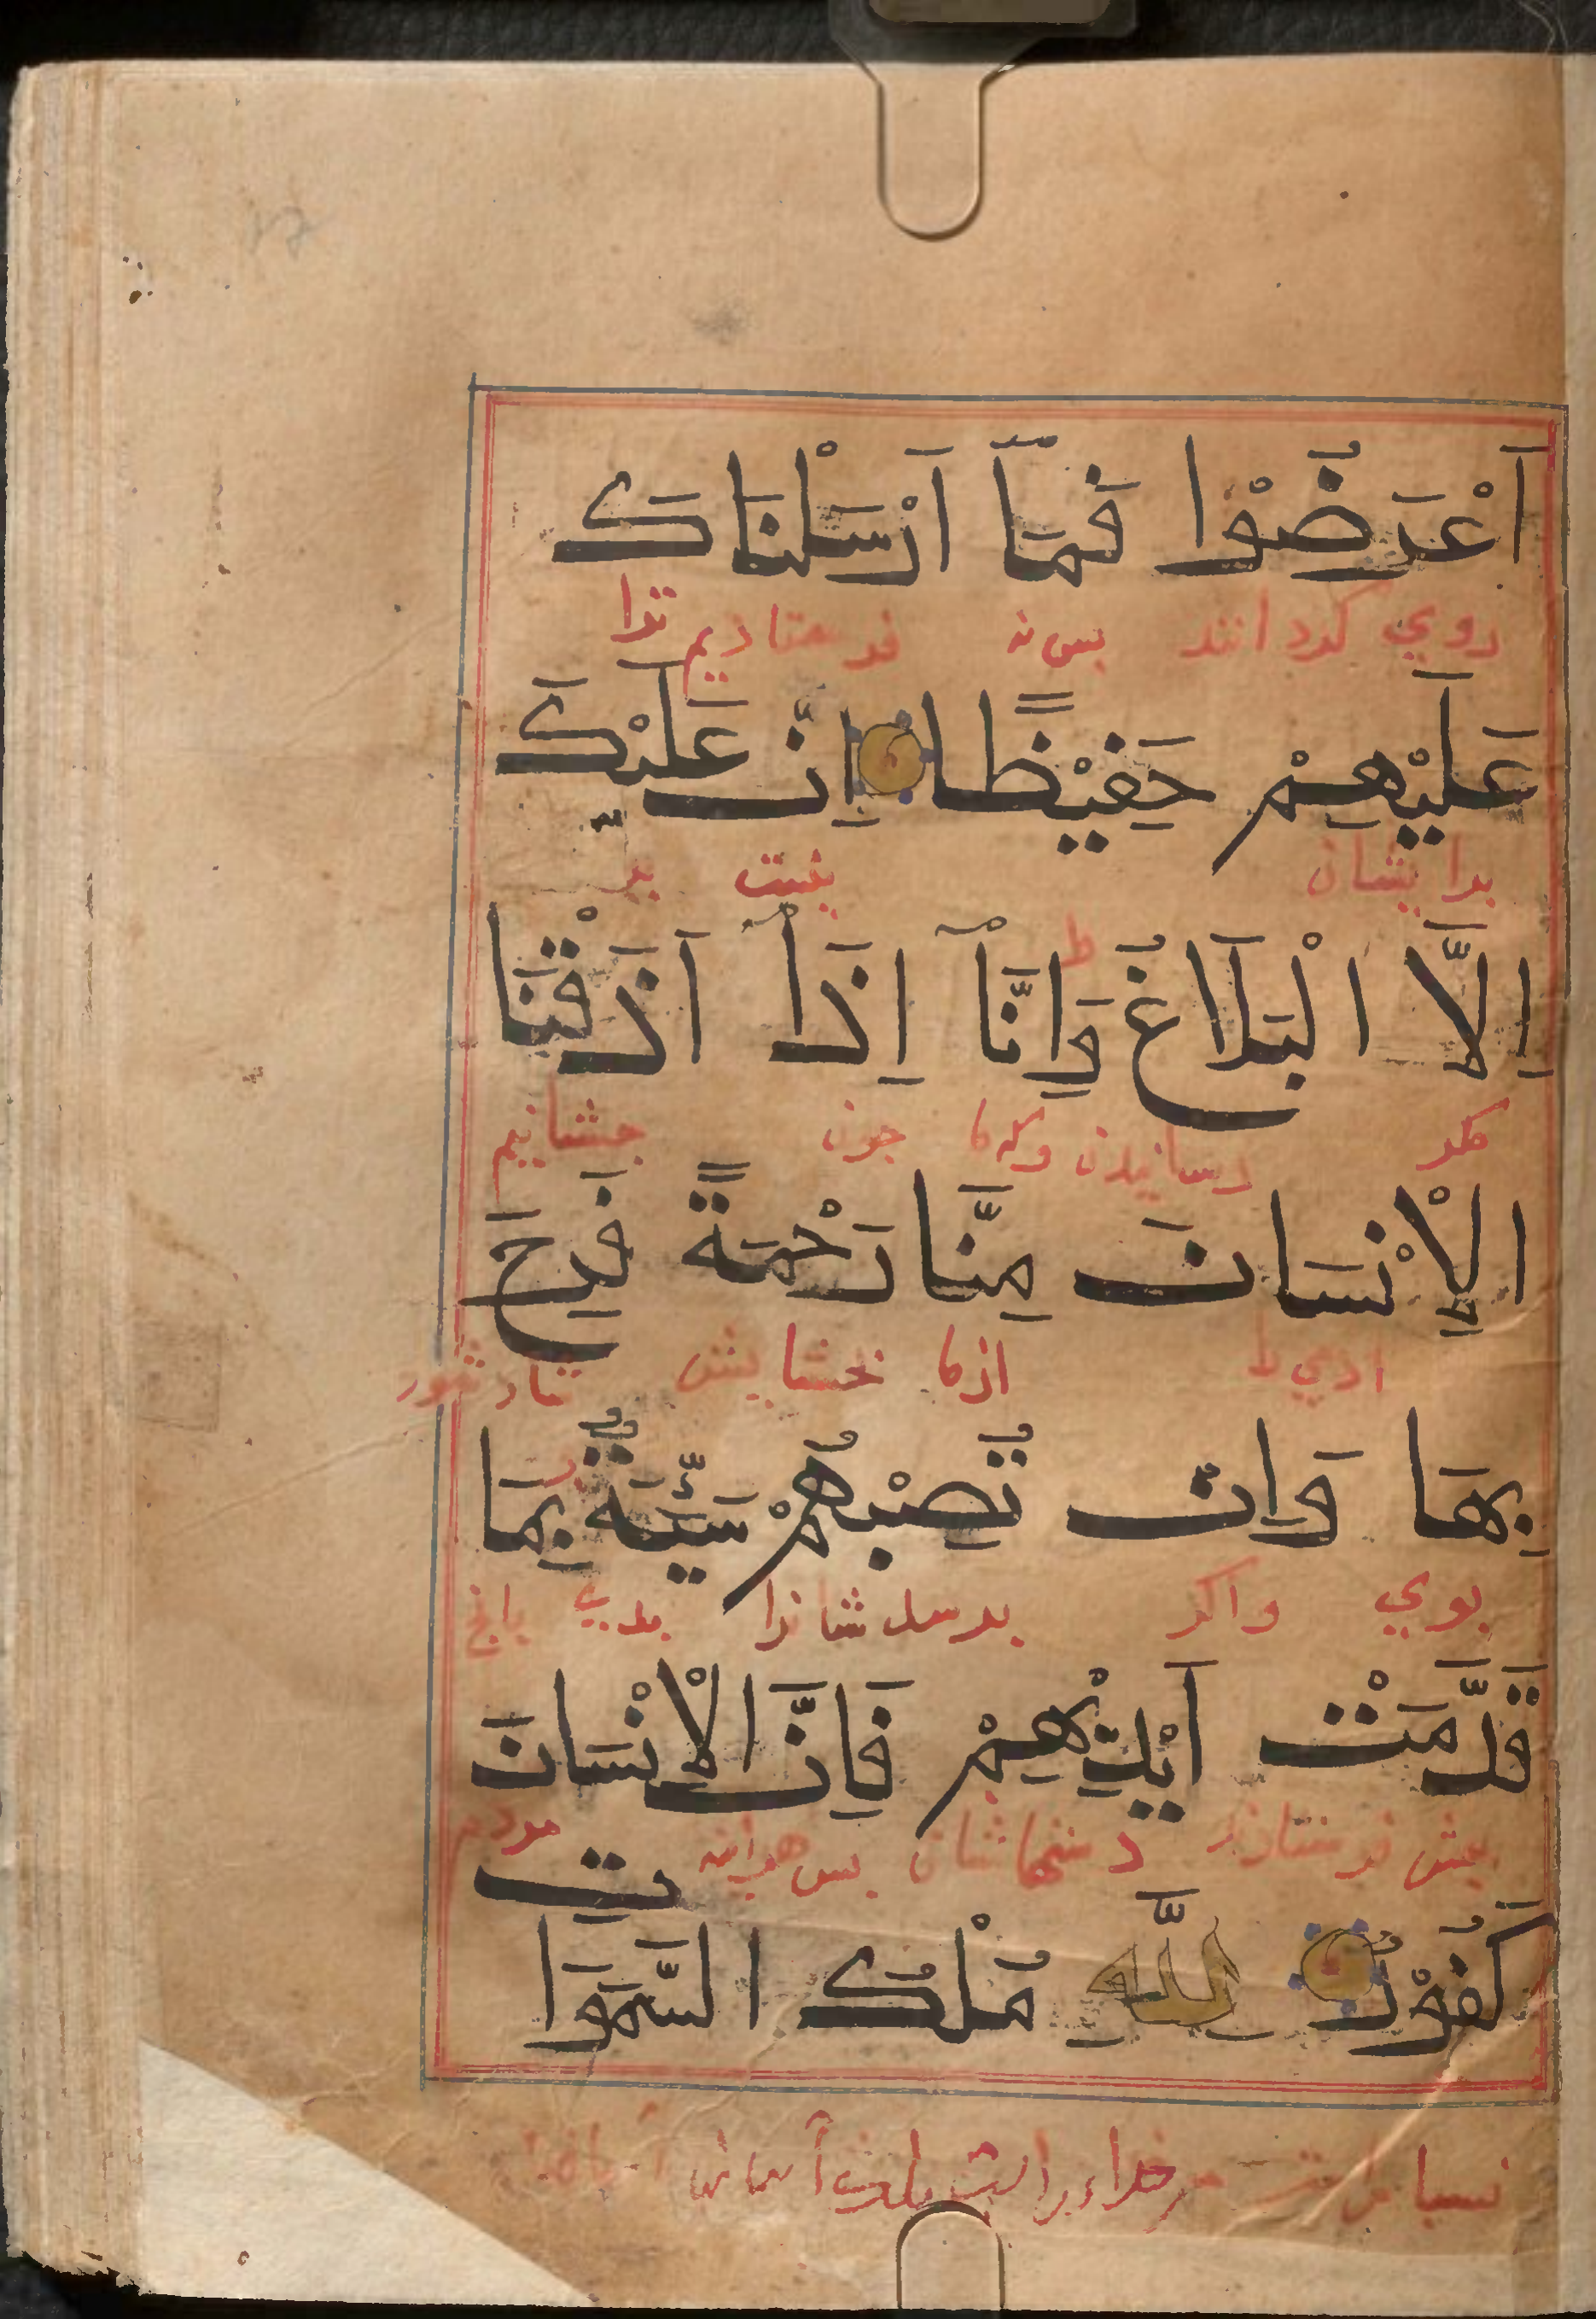 اَعْرَضُوْا فَمَاۤ اَرْسَلْنَاكَ
روي كردانند بس نه فرستاديم ترا
عَلَيْهِمْ حَفِيْظًا اِنْ عَلَيْكَ
برايشان نيست بر
اِلَّا الْبَلَاغُ وَاِنَّاۤ اِذَاۤ اَذَقْنَا
مكر رسانيدن وكه ما جون جشانيم
الْاِنْسَانَ مِنَّا رَحْمَةً فَرِحَ
ادمي را ازما بخشايش شاد شود
بِهَا وَاِنْ تُصِبْهُمْ سَيِّئَةٌ بِمَا
بوي واكر برسد شانرا بدي بانج
قَدَّمَتْ اَيْدِيْهِمْ فَاِنَّ الْاِنْسَانَ
بيش فرستاد دستهاشان بس هراينه مردم
كَفُوْرٌ لِلّٰهِ مُلْكُ السَّمٰوَاتِ
خداء راست ملك آسمانها